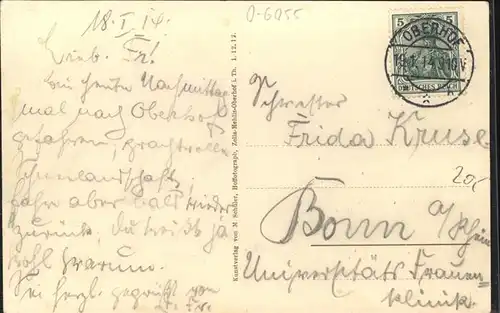 18. I. 14.
Lieb. Fr!
bin heute Nachmittag
mal nach Oberhof
gefahren, prachtvolle
Schneelandschaft,
fahre aber bald wieder
zurück. Du weißt ja
wohl warum.
Sei herzl. gegrüßt von
Kunstverlag von M Schüler, Hoffotograph, Zella-Mehlis-Oberhof i. Th. L. 12. 12.
0-6055
5 5
DEUTSCHES REICH
OBERHOF
19.1.14.
Schwester
Frida Kruse
20,
Bonn a/Rhein
Universitäts Frauen
klinik.